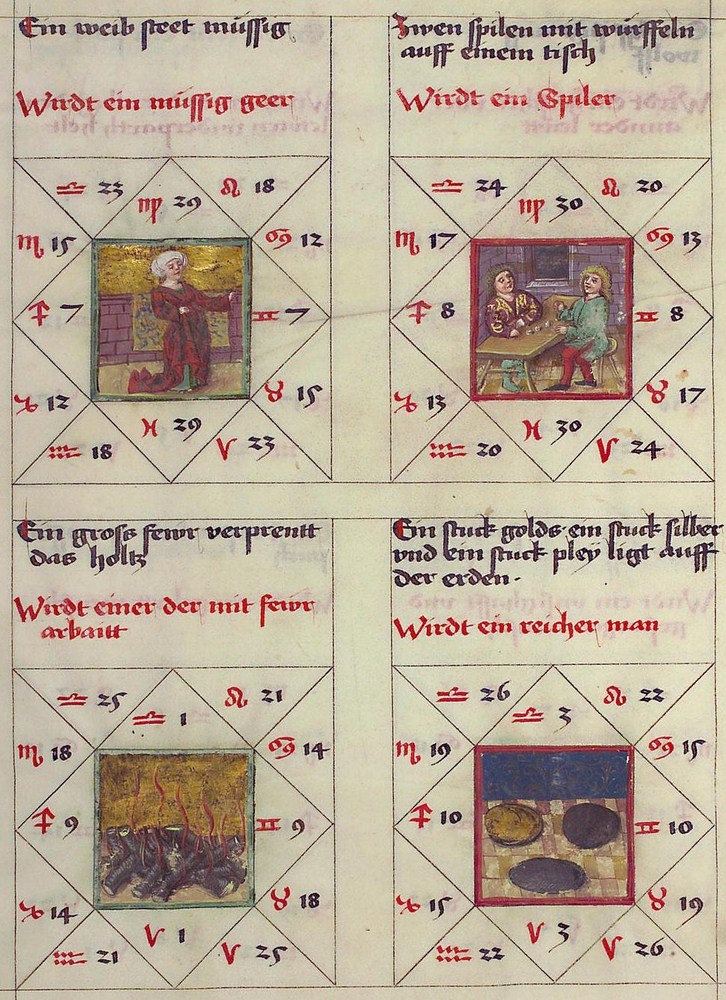 Ein weib steet müssig
Wirdt ein müssig geer
♎ 23
♍ 29
♌ 18
♏ 15
♋ 12
♐ 7
♊ 7
♑ 12
♉ 15
♒ 18
♓ 29
♈ 23
Zwen spilen mit würffeln
auff einem tisch
Wirdt ein Spiler
♎ 24
♍ 30
♌ 20
♏ 17
♋ 13
♐ 8
♊ 8
♑ 13
♉ 17
♒ 20
♓ 30
♈ 24
Ein gross fewr verprentt
das holtz
Wirdt einer der mit fewr
arbaitt
♎ 25
♎ 1
♌ 21
♏ 18
♋ 14
♐ 9
♊ 9
♑ 14
♉ 18
♒ 21
♈ 1
♈ 25
Ein stuck golds ein stuck silber
vnd ein stuck pley ligt auff
der erden.
Wirdt ein reicher man
♎ 26
♎ 3
♌ 22
♏ 19
♋ 15
♐ 10
♊ 10
♑ 15
♉ 19
♒ 22
♈ 3
♈ 26